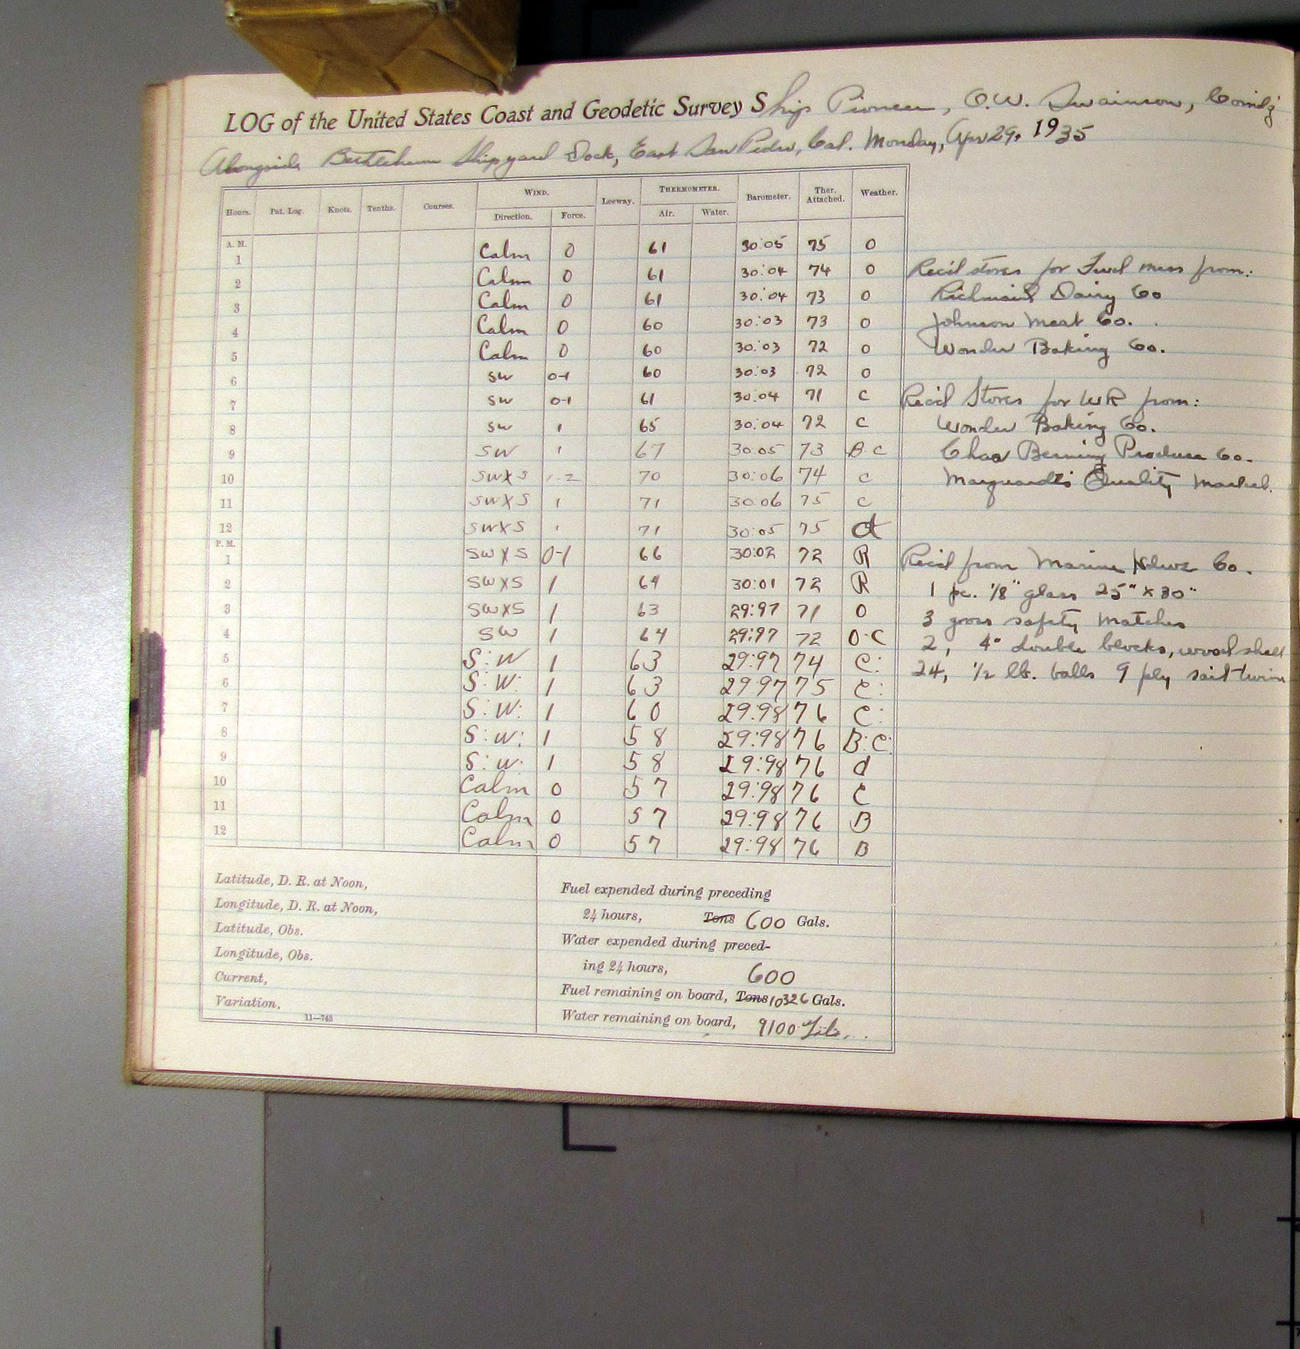 LOG of the United States Coast and Geodetic Survey Ship Pioneer, O.W. Swainson, Comdg
Alongside Bethlehem Shipyard Dock, East San Pedro, Cal. Monday, Apr 29, 1935
Hours. Pat. Log. Knots. Tenths. Courses. WIND. Direction. Force. Leeway. THERMOMETER. Air. Water. Barometer. Ther. Attached. Weather.
A. M.
1 Calm 0 61 30:05 75 O
2 Calm 0 61 30:04 74 O
3 Calm 0 61 30:04 73 O
4 Calm 0 60 30:03 73 O
5 Calm 0 60 30:03 72 O
6 SW 0-1 60 30:03 72 O
7 SW 0-1 61 30:04 71 C
8 SW 1 65 30:04 72 C
9 SW 1 67 30:05 73 B.C
10 SWXS 1-2 70 30:06 74 C
11 SWXS 1 71 30:06 75 C
12 SWXS 1 71 30:05 75
P. M.
1 SWXS 0-1 66 30:02 72 R
2 SWXS 1 64 30:01 72 R
3 SWXS 1 63 29:97 71 O
4 SW 1 64 29:97 72 O.C
5 S:W 1 63 29:97 74 C:
6 S:W: 1 63 29:97 75 C:
7 S:W: 1 60 29:98 76 C:
8 S:W: 1 58 29:98 76 B:C:
9 S:W: 1 58 29:98 76 d
10 Calm 0 57 29:98 76 C
11 Calm 0 57 29:98 76 B
12 Calm 0 57 29:98 76 B
Rec'd stores for Fwd mess from:
Richmaid Dairy Co
Johnson Meat Co.
Wonder Baking Co.
Rec'd Stores for WR from:
Wonder Baking Co.
Chas Berning Produce Co.
Marquardt's Quality Market.
Rec'd from Marine Hdwe Co.
1 pc. 1/8" glass 25" x 30"
3 gross safety matches
2, 4" double blocks, wood shell
24, 1/2 lb. balls 9 ply sail twine
Latitude, D. R. at Noon,
Longitude, D. R. at Noon,
Latitude, Obs.
Longitude, Obs.
Current,
Variation,
11—763
Fuel expended during preceding
24 hours, Tons 600 Gals.
Water expended during preced-
ing 24 hours, 600
Fuel remaining on board, Tons 10326 Gals.
Water remaining on board, 9100